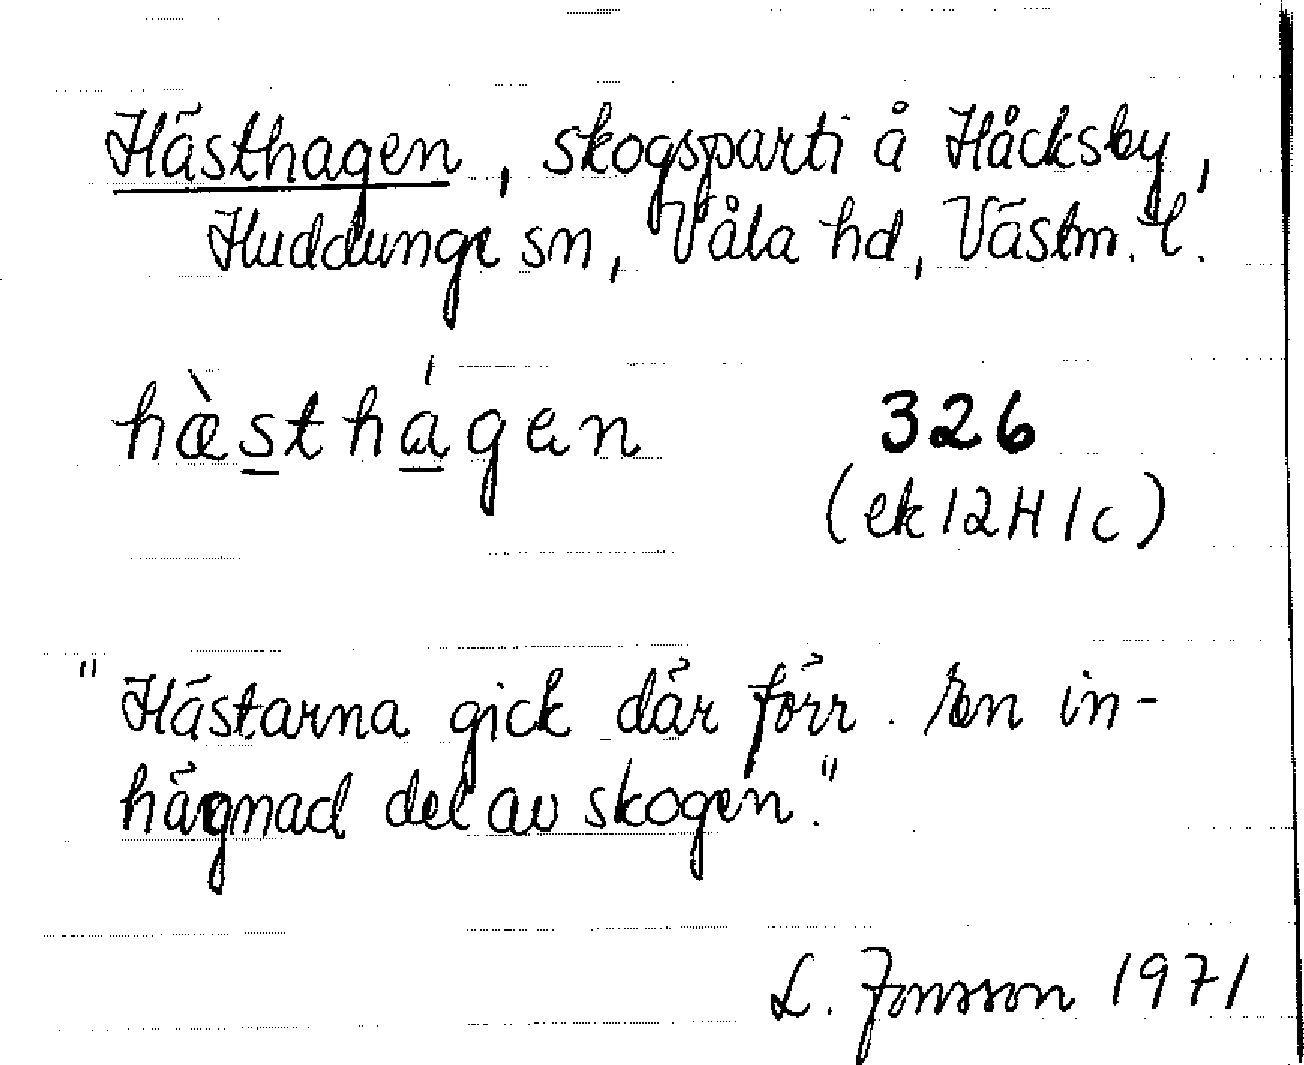 Hästhagen, skogsparti å Håcksby,
Huddunge sn, Våla hd, Västm. l.
hæ̀sthágen 326
(ek 12H 1c)
"Hästarna gick där förr. En in-
hägnad del av skogen."
L. Jonsson 1971